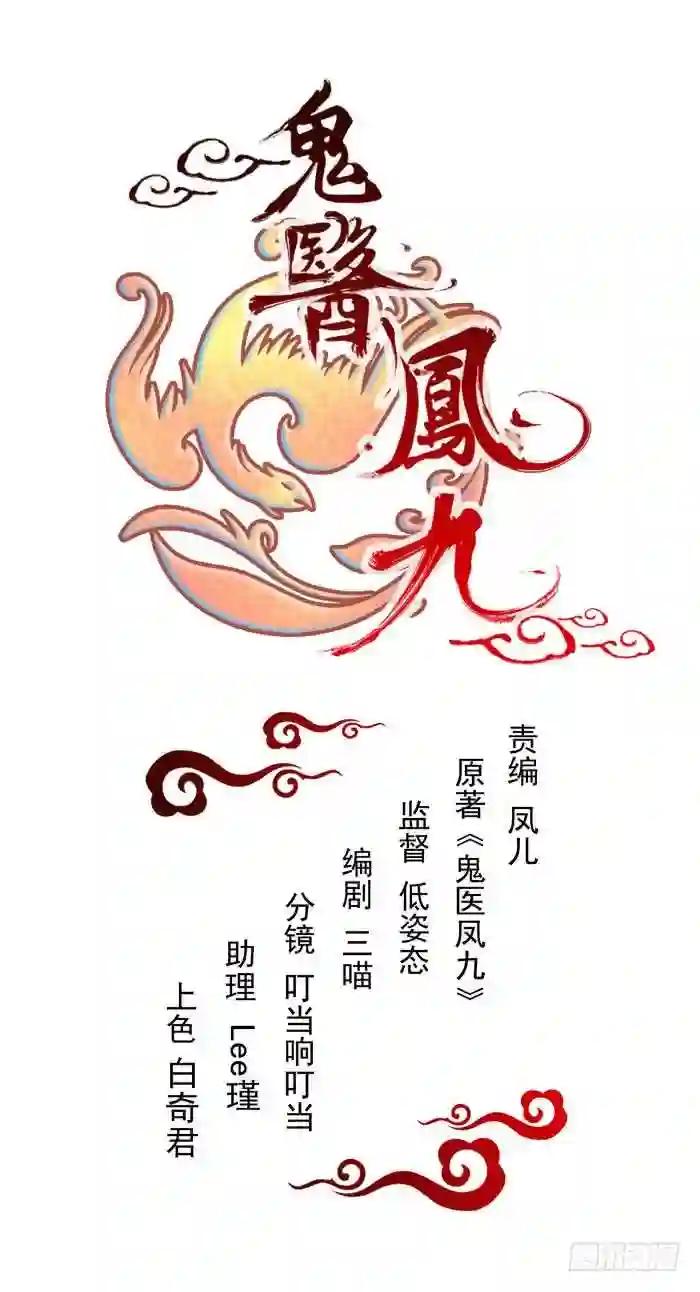 鬼醫鳳九
责编 凤儿
原著《鬼医凤九》
监督 低姿态
编剧 三喵
分镜 叮当响叮当
助理 Lee瑾
上色 白奇君